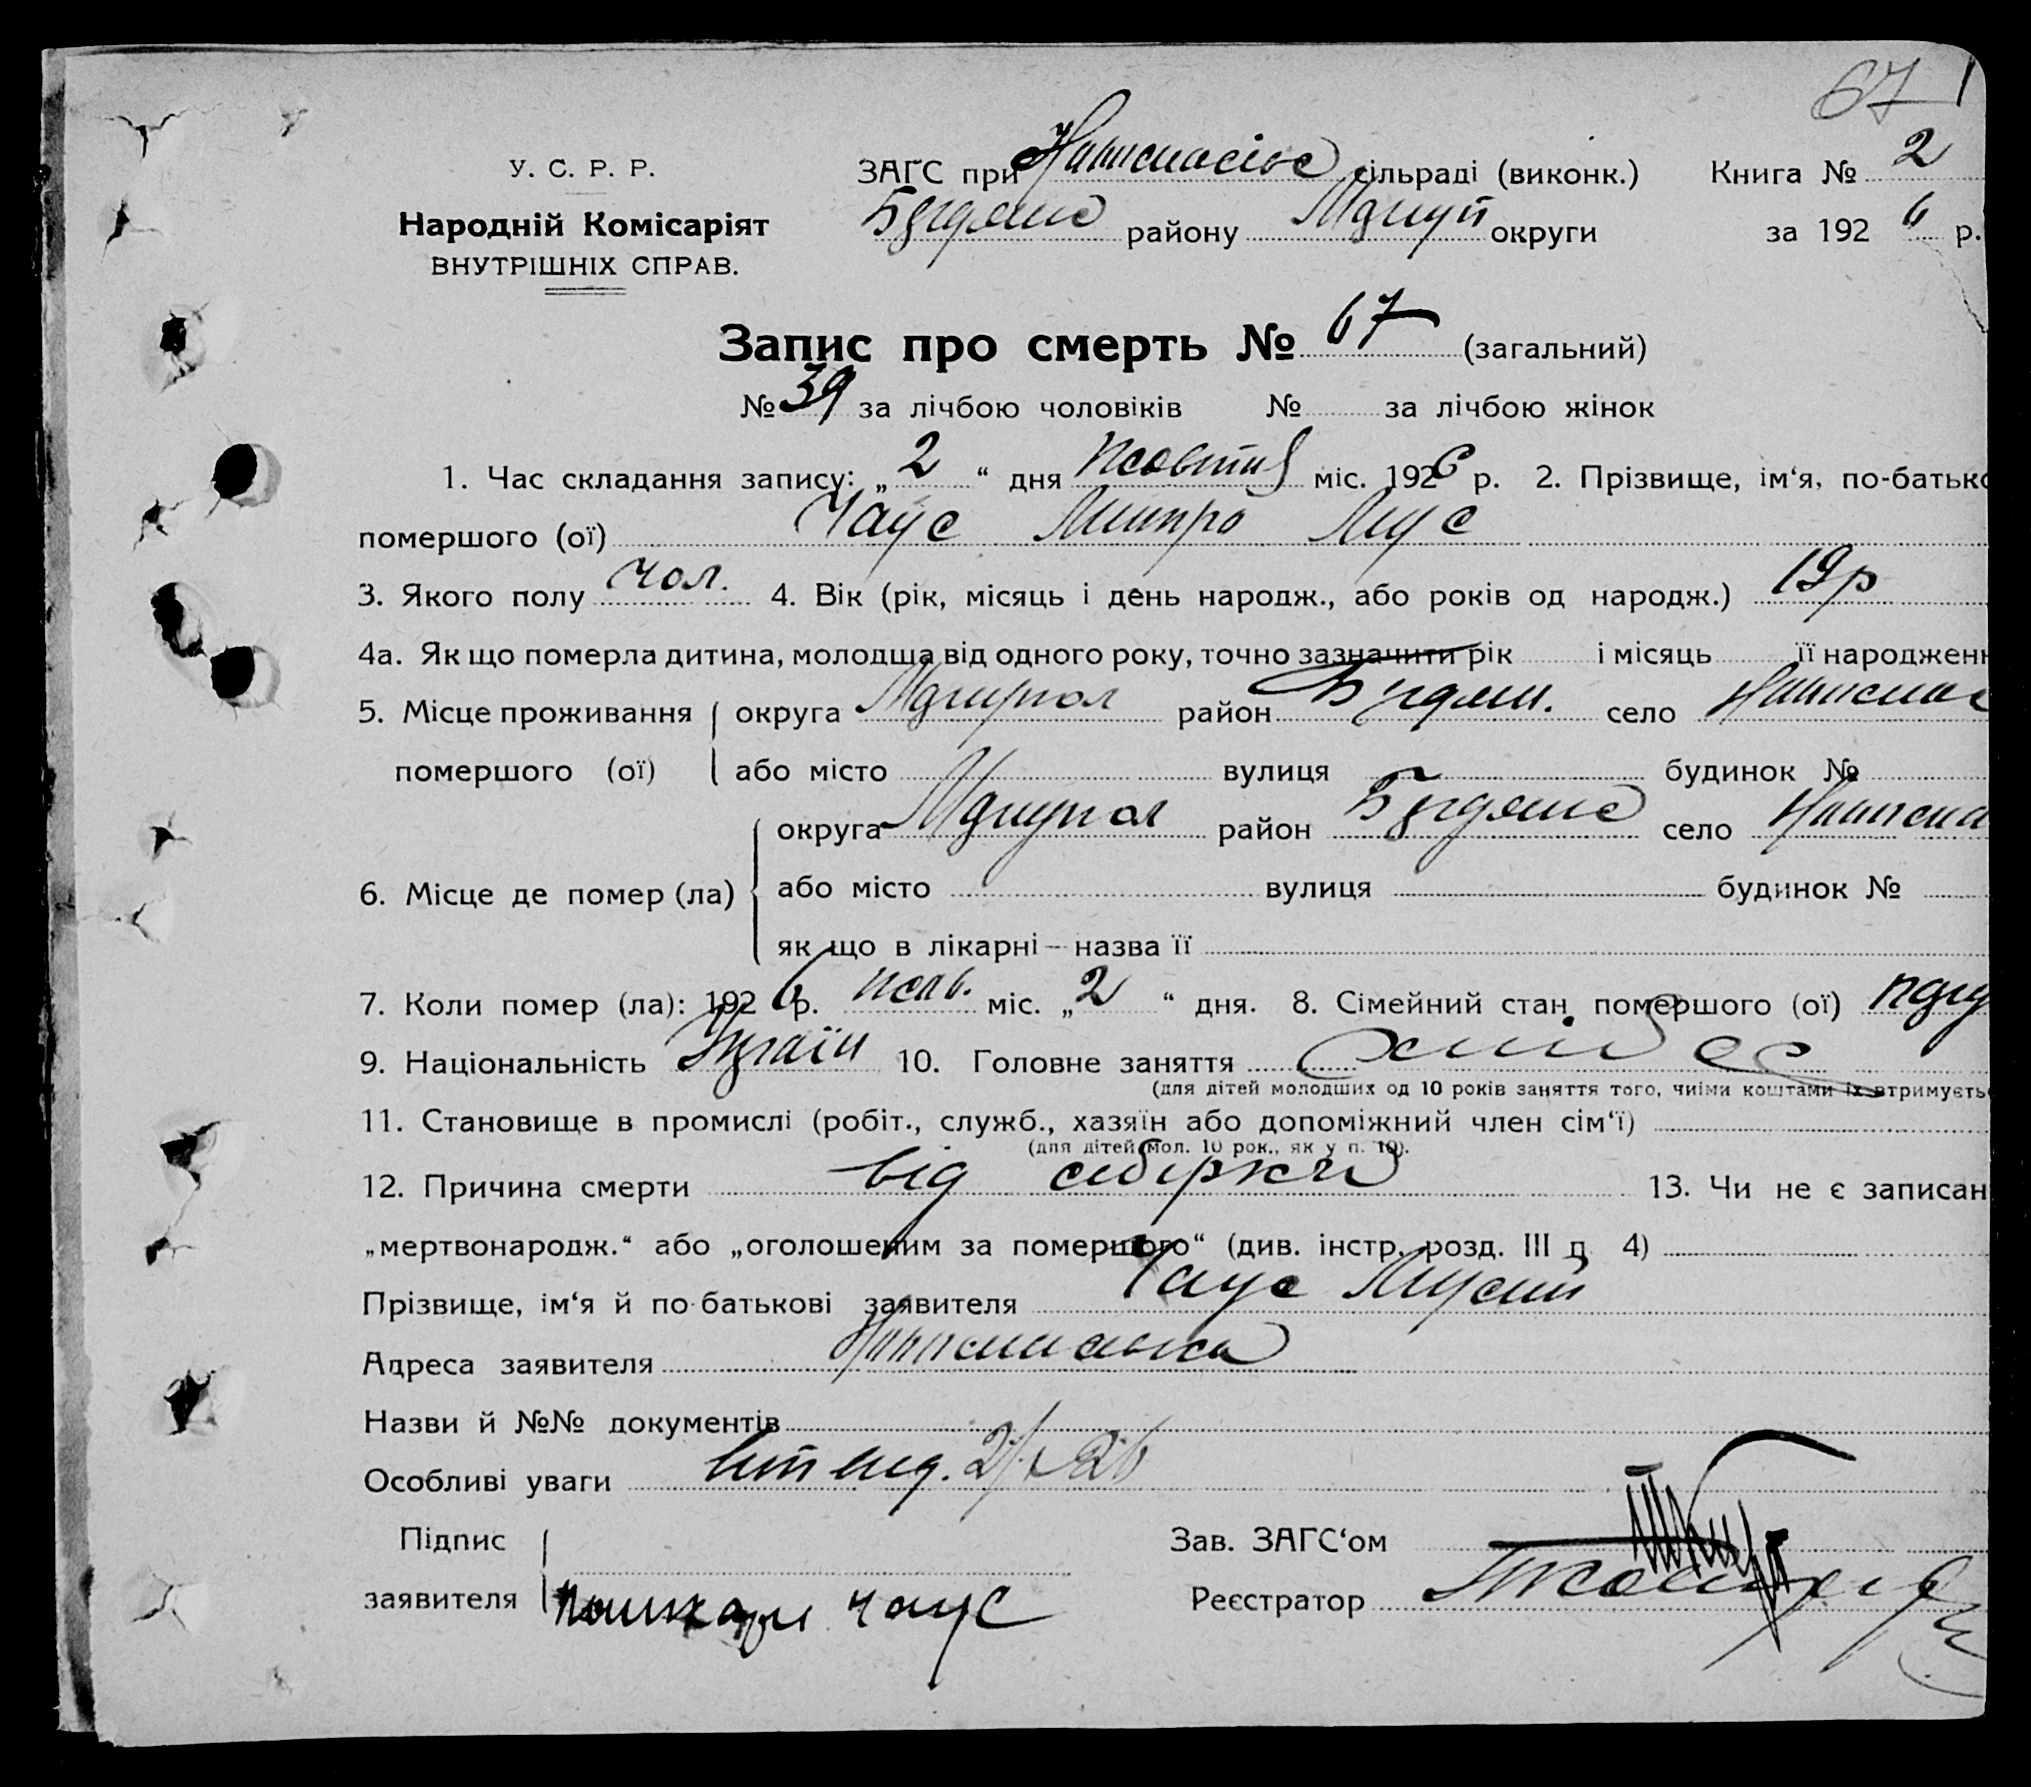 67
У. С. Р. Р. ЗАГС при сільраді (виконк.) Книга № 2
Народній Комісаріят району округи за 192 6 р.
ВНУТРІШНІХ СПРАВ.
Запис про смерть № 67 (загальний)
№ 39 за лічбою чоловіків № за лічбою жінок
1. Час складання запису: „ 2 “ дня жовтня міс. 1926 р. 2. Прізвище, ім‘я, по-батько
помершого (ої) Чаус Митро Мус
3. Якого полу чол. 4. Вік (рік, місяць і день народж., або років од народж.) 19р
4а. Як що померла дитина, молодша від одного року, точно зазначити рік і місяць її народженн
5. Місце проживання округа район село
помершого (ої) або місто вулиця будинок №
округа район село
6. Місце де помер (ла) або місто вулиця будинок №
як що в лікарні — назва її
7. Коли помер (ла): 192 6 р. жов. міс. „ 2 “ дня. 8. Сімейний стан помершого (ої)
9. Національність Україн 10. Головне заняття
(для дітей молодших од 10 років заняття того, чиіми коштами їх втримуєть
11. Становище в промислі (робіт., служб., хазяїн або допоміжний член сім‘ї)
(для дітей мол. 10 рок., як у п. 10).
12. Причина смерти від сибірки 13. Чи не є записан
„мертвонародж.“ або „оголошеним за помершого“ (див. інстр. розд. III п 4)
Прізвище, ім‘я й по-батькові заявителя Чаус Мусій
Адреса заявителя
Назви й №№ документів
Особливі уваги
Підпис Зав. ЗАГС‘ом
заявителя чаус Реєстратор